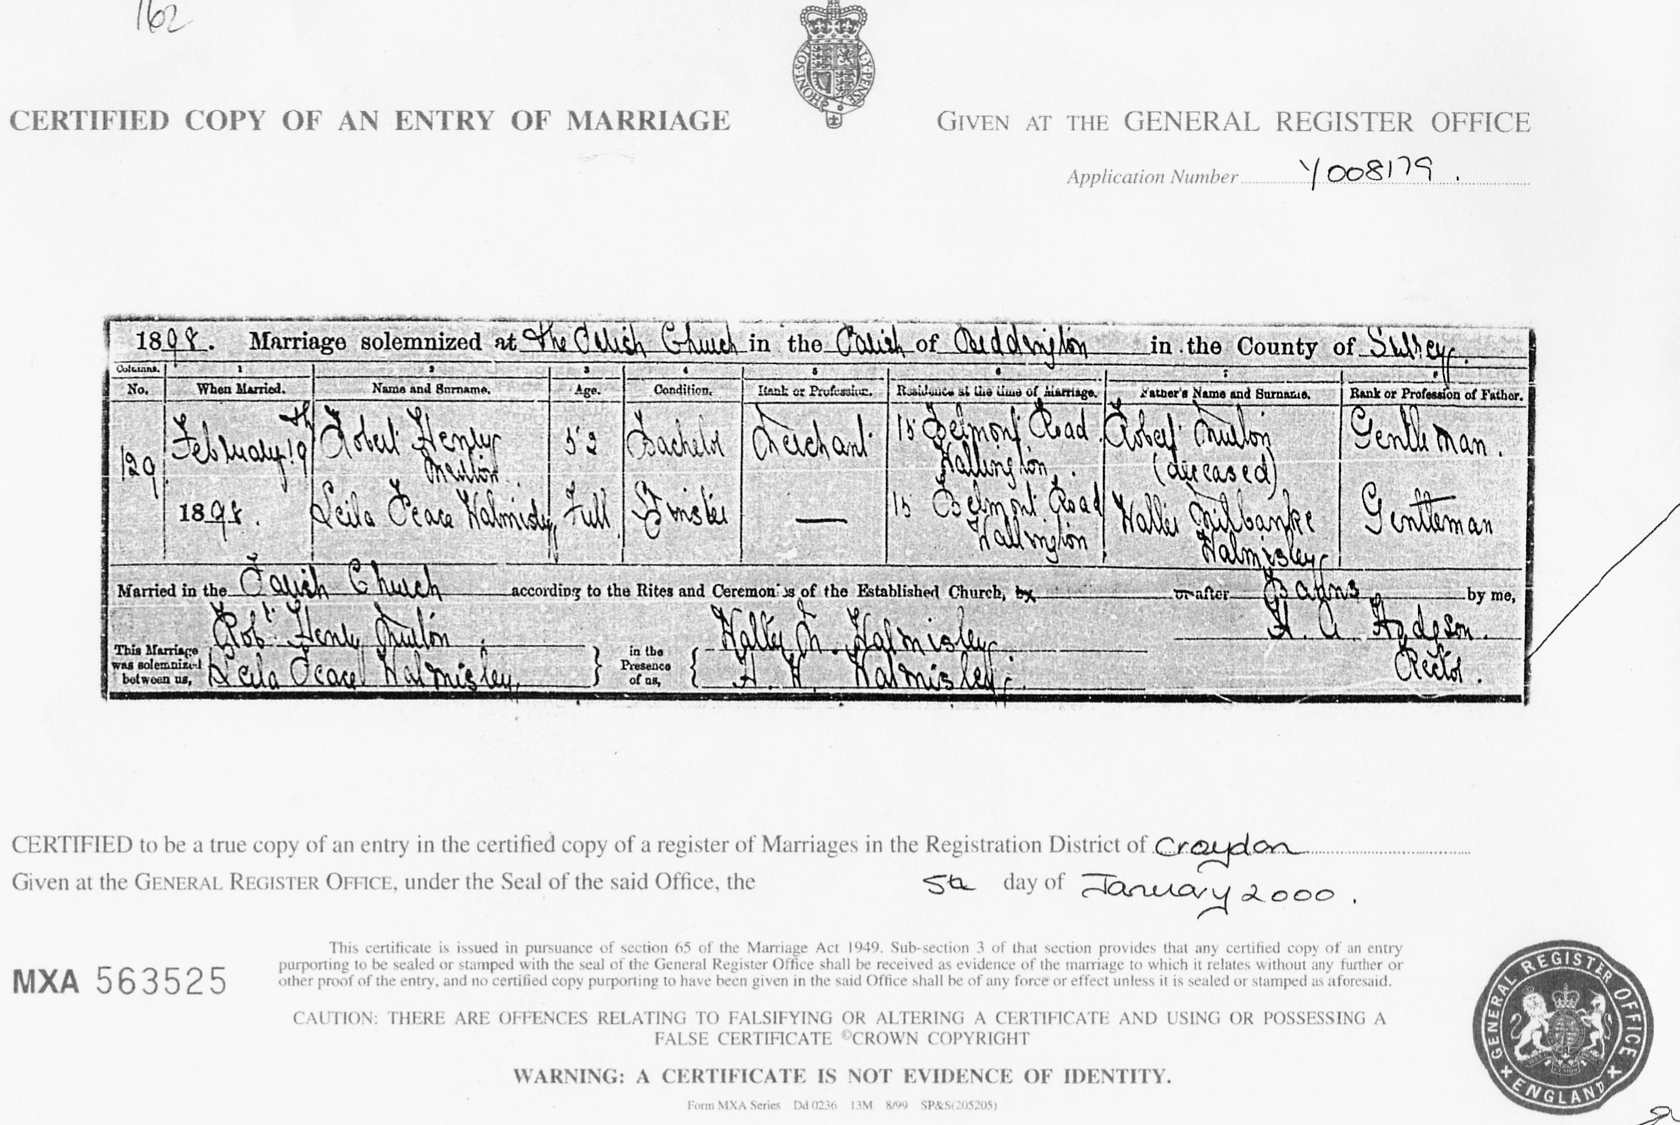 162
HONI·SOIT·
·Y·PENSE
CERTIFIED COPY OF AN ENTRY OF MARRIAGE
GIVEN AT THE GENERAL REGISTER OFFICE
Application Number Y008179.
1898. Marriage solemnized at The Parish Church in the Parish of Beddington in the County of Surrey.
Columns. 1 2 3 4 5 6 7 8
No. When Married. Name and Surname. Age. Condition. Rank or Profession. Residence at the time of Marriage. Father's Name and Surname. Rank or Profession of Father.
129 February 19th Robert Henry 53 Bachelor Merchant 15 Belmont Road Wallington. Robert (deceased) Gentleman.
1898. Leila Peace Walmisley Full Spinster — 15 Belmont Road Wallington Walter Milbanke Walmisley Gentleman
Married in the Parish Church according to the Rites and Ceremonies of the Established Church, by or after Banns by me,
This Marriage was solemnized between us, Robt Henry
Leila Peace Walmisley
in the Presence of us, Walter M. Walmisley
A. W. Walmisley.
H. A. Hodgson.
Rector.
CERTIFIED to be a true copy of an entry in the certified copy of a register of Marriages in the Registration District of Croydon
Given at the GENERAL REGISTER OFFICE, under the Seal of the said Office, the 5th day of January 2000.
This certificate is issued in pursuance of section 65 of the Marriage Act 1949. Sub-section 3 of that section provides that any certified copy of an entry
purporting to be sealed or stamped with the seal of the General Register Office shall be received as evidence of the marriage to which it relates without any further or
other proof of the entry, and no certified copy purporting to have been given in the said Office shall be of any force or effect unless it is sealed or stamped as aforesaid.
MXA 563525
CAUTION: THERE ARE OFFENCES RELATING TO FALSIFYING OR ALTERING A CERTIFICATE AND USING OR POSSESSING A
FALSE CERTIFICATE ©CROWN COPYRIGHT
WARNING: A CERTIFICATE IS NOT EVIDENCE OF IDENTITY.
Form MXA Series Dd 0236 13M 8/99 SP&S(205205)
GENERAL REGISTER OFFICE
ENGLAND